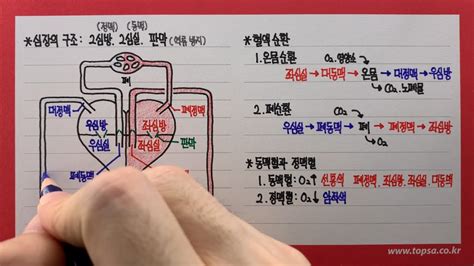 (정맥) (동맥)
*심장의 구조: 2심방, 2심실, 판막 (역류 방지)
폐
대정맥
폐정맥
우심방
좌심방
우심실
좌심실
판막
폐동맥
*혈액 순환
1. 온몸순환
O₂, 영양소
좌심실 → 대동맥 → 온몸 → 대정맥 → 우심방
CO₂, 노폐물
2. 폐순환
CO₂
우심실 → 폐동맥 → 폐 → 폐정맥 → 좌심방
O₂
*동맥혈과 정맥혈
1. 동맥혈: O₂↑ 선홍색 폐정맥, 좌심방, 좌심실, 대동맥
2. 정맥혈: O₂↓ 암적색
www.topsa.co.kr